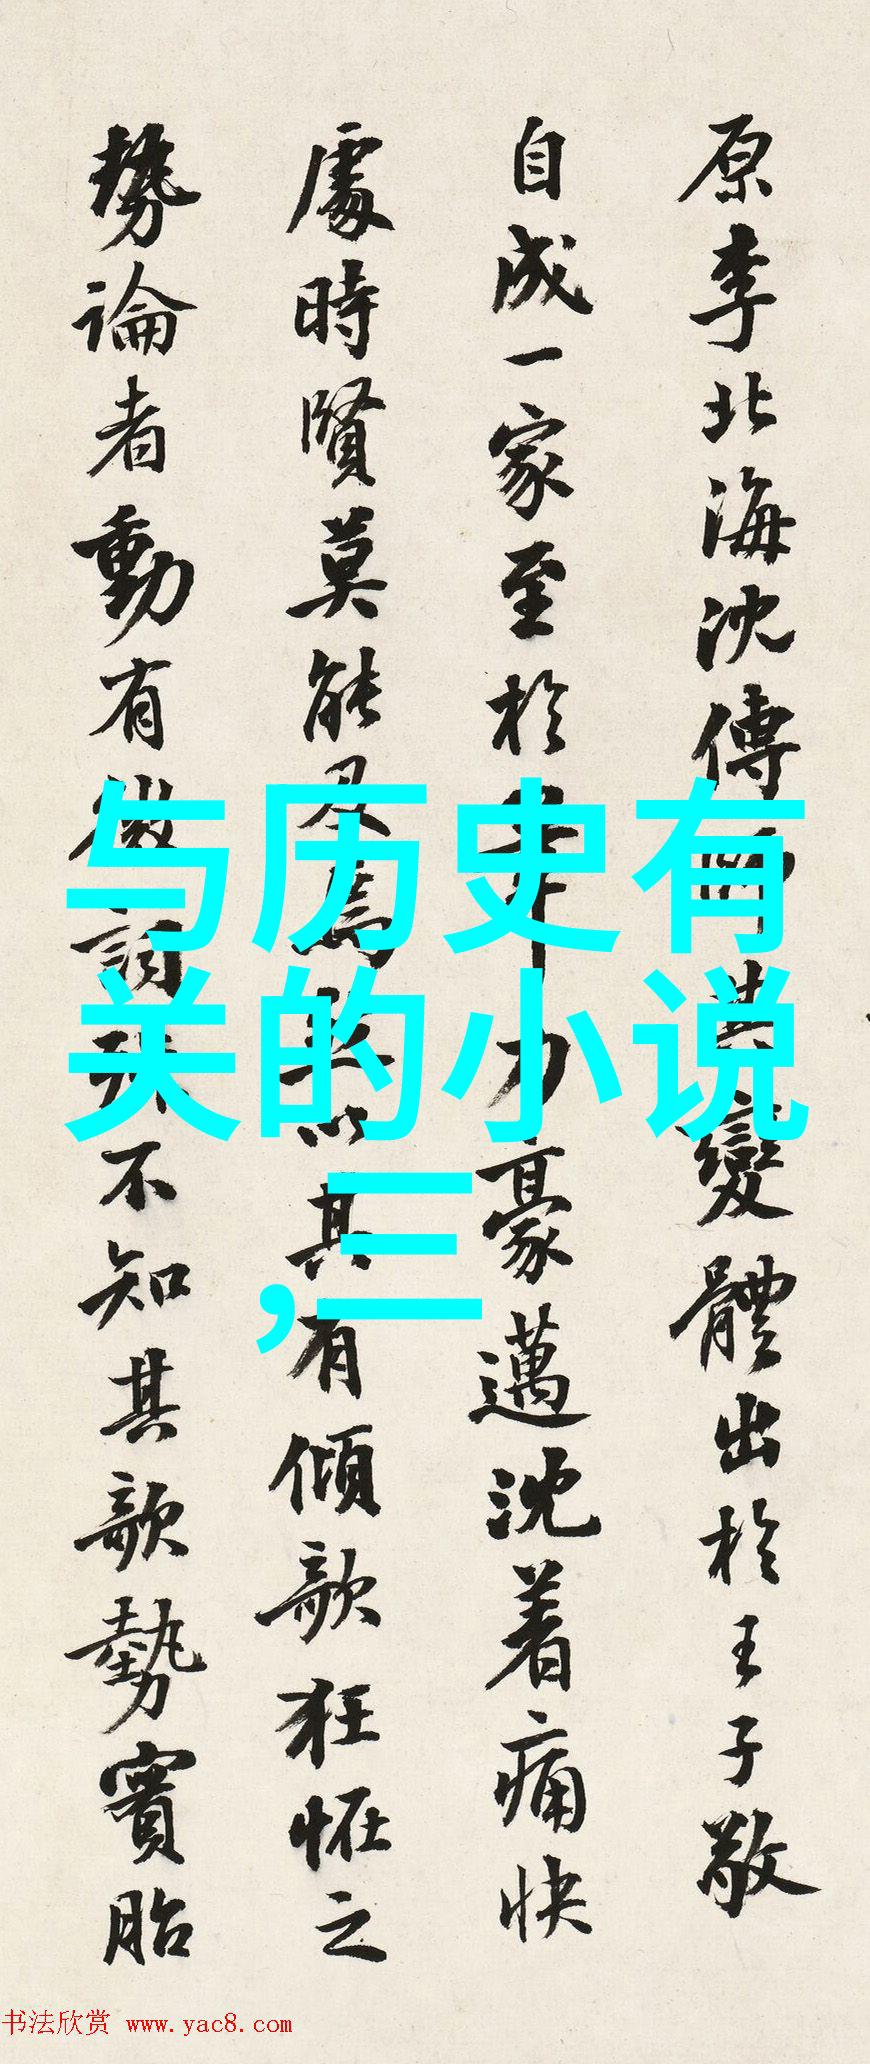 原李北海沈傳師其變體出於王子敬
自成一家至於筆力豪邁沈着痛快
處時賢莫能及焉然以其有傾欹狂怪之
勢論者動有微詞殊不知其欹勢實胎
与历史有
关的小说
,三
书法欣赏 www.yac8.com